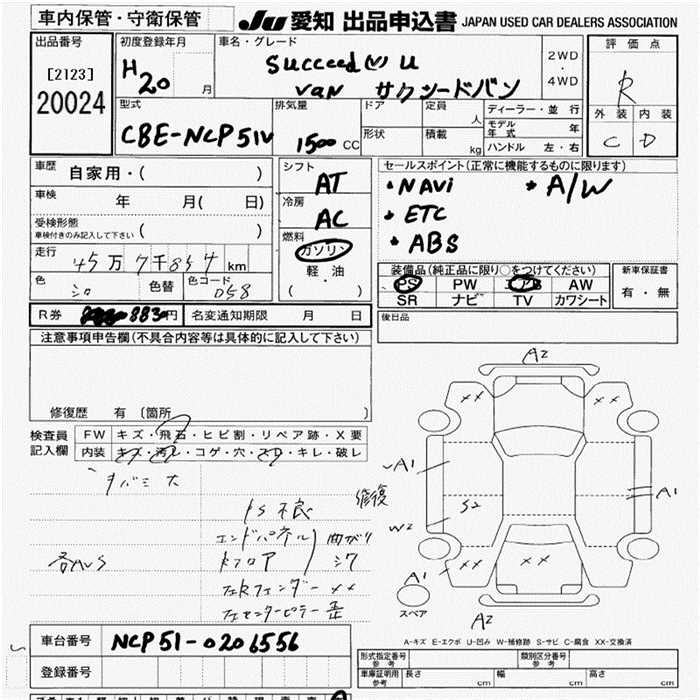 車内保管・守衛保管
JU 愛知 出品申込書 JAPAN USED CAR DEALERS ASSOCIATION
出品番号
[2123]
20024
初度登録年月
H20 月
車名・グレード
Succeed U
VAN サクシードバン
2WD
・
4WD
評価点
R
外装 内装
C D
型式
CBE-NCP51V
排気量
1500 CC
ドア
形状
定員 人
積載 kg
ディーラー・並 行
モデル年式 年
ハンドル 左・右
車歴 自家用・( )
車検 年 月( 日)
受検形態
車検付きのみ記入して下さい ( )
走行 45万7千857km
色 シロ 色替 色コード 058
シフト
AT
冷房
AC
燃料
ガソリン
軽・油
( )
セールスポイント(正常に機能するものに限ります)
・NAVi ・A/W
・ETC
・ABS
装備品(純正品に限り○をつけてください)
PS PW エアB AW
SR ナビ TV カワシート
新車保証書
有・無
R券 8830円 名変通知期限 月 日
後日品
注意事項申告欄(不具合内容等は具体的に記入して下さい)
修復歴 有 〔箇所 〕
検査員
記入欄
FW キズ・飛石・ヒビ割・リペア跡・X要
内装 キズ・汚レ・コゲ・穴・スレ・キレ・破レ
PS不良
修復
エンドパネル
曲がり
Rフロア
シワ
各AUS
A2
XX XX
A1
A1
S2
W2
A1
XX XX
A2
スペア
A-キズ E-エクボ U-凹み W-補修跡 S-サビ C-腐食 XX-交換済
車台番号 NCP51-0206556
登録番号
形式指定番号
参考
類別区分番号
参考
車庫証明用
参考
長さ cm 幅 cm 高さ cm